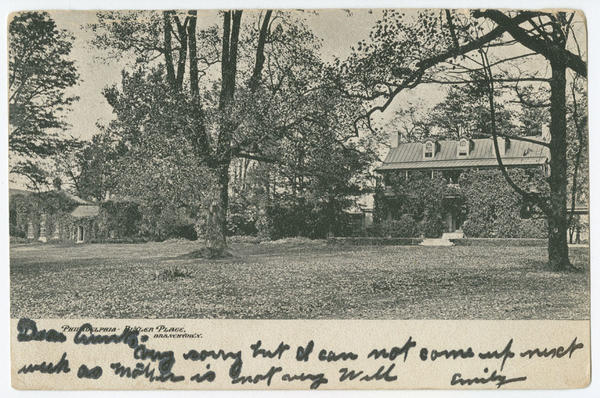 Philadelphia - Butler Place,
Branchtown.
Dear Aunt:-
Very sorry but I can not come up next
week as Mother is not very Well
Emily